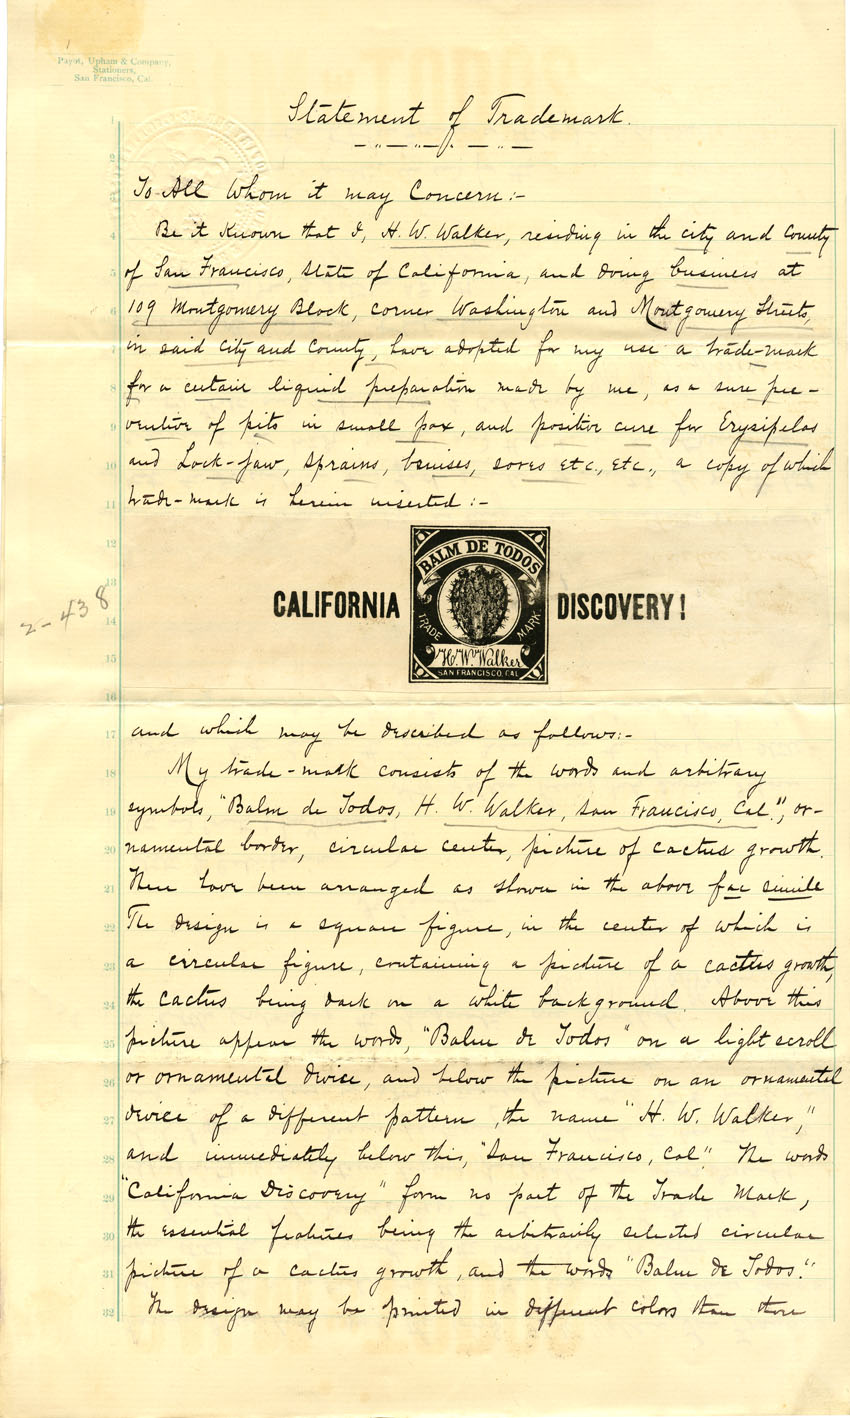 Payot, Upham & Company,
Stationers,
San Francisco, Cal.
Statement of Trademark.
1
2
3 To All Whom it may Concern:-
4 Be it Known that I, H. W. Walker, residing in the city and County
5 of San Francisco, State of California, and doing business at
6 109 Montgomery Block, corner Washington and Montgomery Streets,
7 in said City and County, have adopted for my use a trade-mark
8 for a certain liquid preparation made by me, as a sure pre-
9 ventive of pits in small pox, and positive cure for Erysipelas
10 and Lock-jaw, Sprains, bruises, sores etc., etc., a copy of which
11 trade-mark is herein inserted:-
12
13
14
15
16
2-438
CALIFORNIA
BALM DE TODOS
TRADE MARK
H. W. Walker
SAN FRANCISCO, CAL
DISCOVERY!
17 and which may be described as follows:-
18 My trade-mark consists of the words and arbitrary
19 symbols, "Balm de Todos, H. W. Walker, San Francisco, Cal.", or-
20 namental border, circular center, picture of cactus growth.
21 These have been arranged as shown in the above fac simile
22 The design is a square figure, in the center of which is
23 a circular figure, containing a picture of a cactus growth,
24 the cactus being dark on a white background. Above this
25 picture appear the words, "Balm de Todos" on a light scroll
26 or ornamental device, and below the picture on an ornamental
27 device of a different pattern, the name "H. W. Walker,"
28 and immediately below this, "San Francisco, Cal". The words
29 "California Discovery" form no part of the Trade Mark,
30 the essential features being the arbitrarily selected circular
31 picture of a cactus growth, and the words "Balm de Todos."
32 The design may be printed in different colors than those